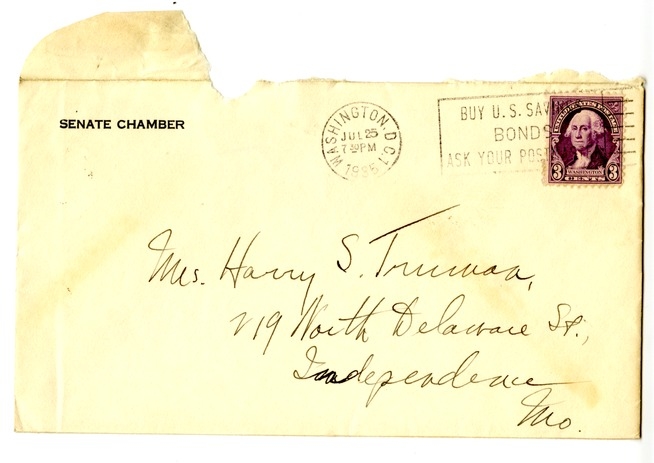 SENATE CHAMBER
WASHINGTON, D.C. 1
JUL 25
7 30 PM
1935
BUY U.S. SAV
BONDS
ASK YOUR POST
UNITED STATES POSTAGE
3 WASHINGTON 3
CENTS
Mrs. Harry S. Truman,
219 North Delaware St.,
Independence
Mo.